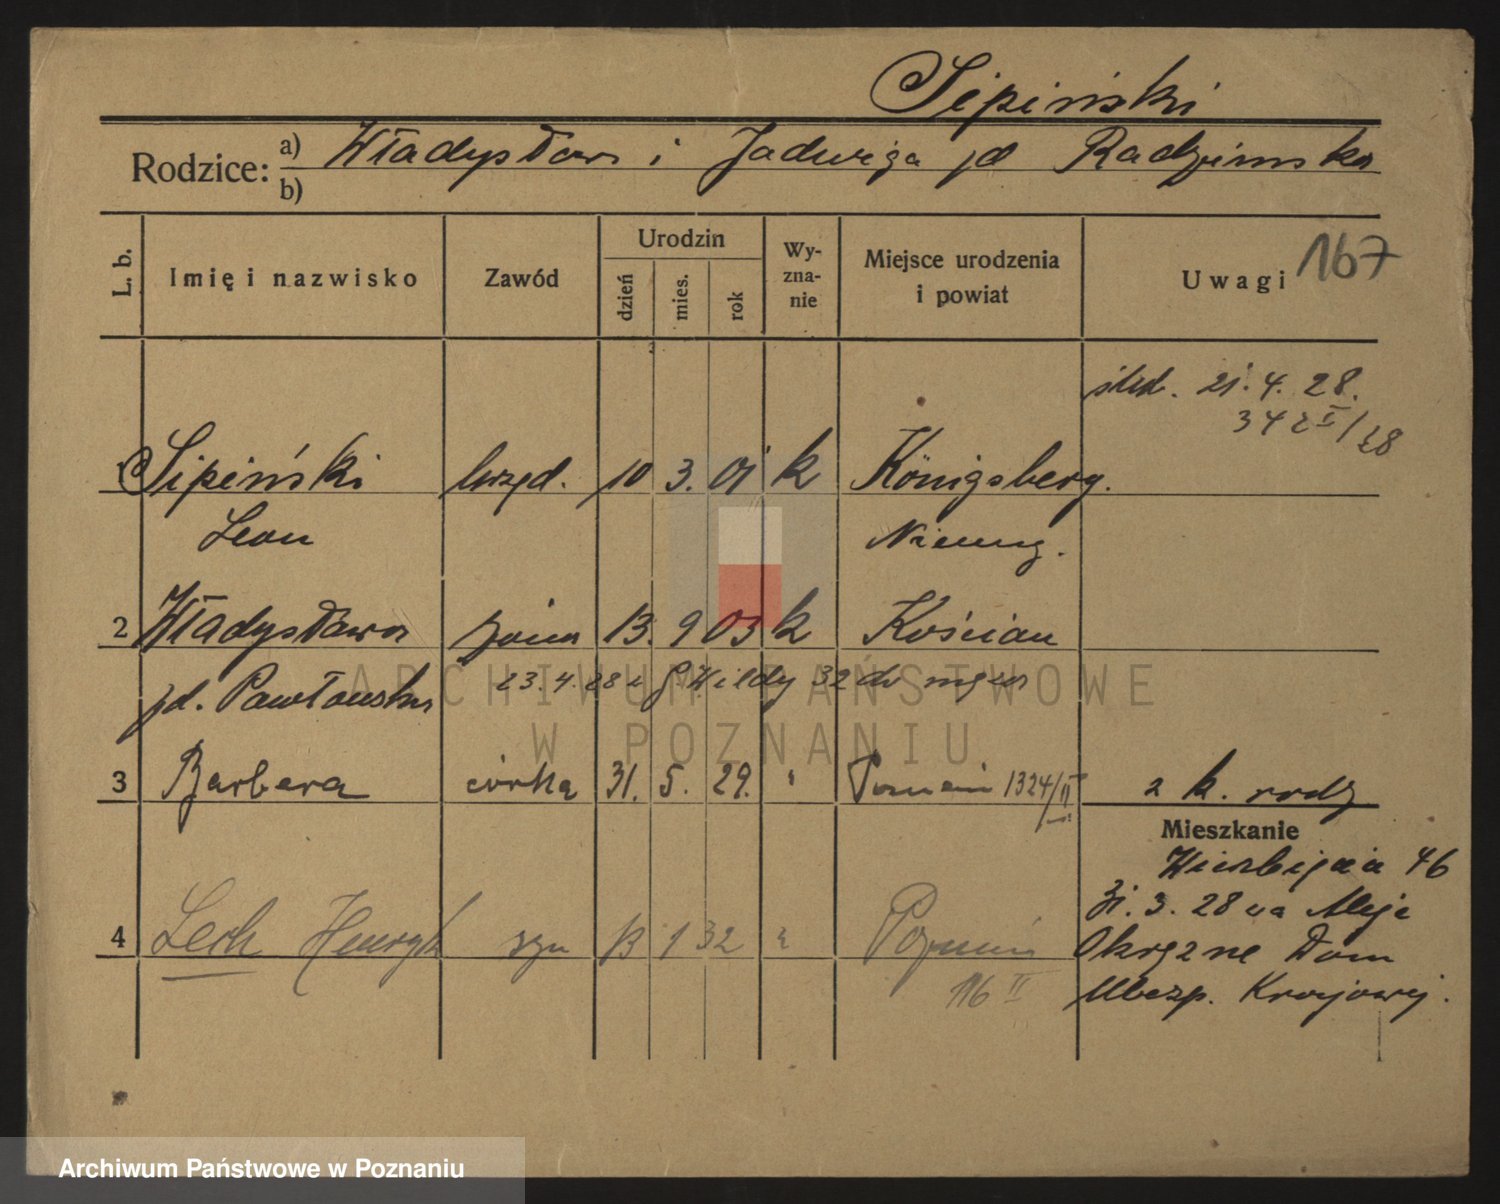 Sipiński
Rodzice: a) Władysław i Jadwiga zd Radzimska
b)
L. b.
Imię i nazwisko
Zawód
Urodzin
dzień
mies.
rok
Wy-
zna-
nie
Miejsce urodzenia
i powiat
Uwagi 167
ślub. 21. 4. 28.
342 II/28
Sipiński urzęd. 10 3. 01 k Königsberg.
Leon Niemcy.
2 Władysława żona 13. 9 03 k Kościan
zd. Pawłowska 23. 4. 28 z G Wildy 32 do męża
3 Barbara córka 31. 5. 29. " Poznań 1324/II z k. rodz
4 Lech Henryk syn 13 1 32 " Poznań
116 II
Mieszkanie
Wierzbięcia 46
31. 3. 28 na Aleje
Okrężne Dom
Ubezp. Krajowej.
ARCHIWUM PAŃSTWOWE
W POZNANIU
Archiwum Państwowe w Poznaniu